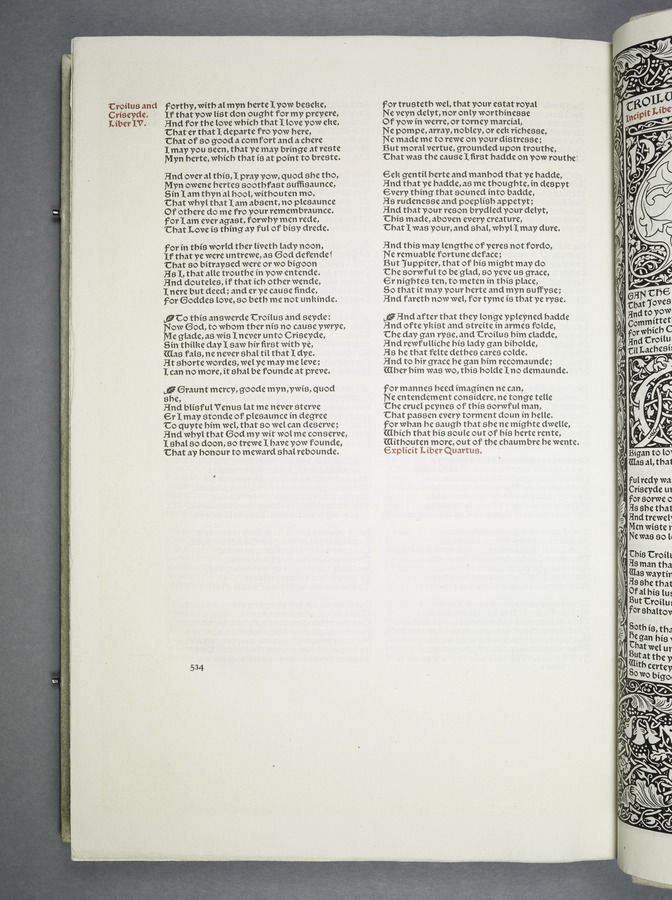 Troilus and
Criseyde.
Liber IV.
Forthy, with al myn herte I yow beseke,
If that yow list don ought for my preyere,
And for the love which that I love yow eke,
That er that I departe fro yow here,
That of so good a comfort and a chere
I may you seen, that ye may bringe at reste
Myn herte, which that is at point to breste.
And over al this, I pray yow, quod she tho,
Myn owene hertes soothfast suffisaunce,
Sin I am thyn al hool, withouten mo,
That whyl that I am absent, no plesaunce
Of othere do me fro your remembraunce.
For I am ever agast, forwhy men rede,
That Love is thing ay ful of bisy drede.
For in this world ther liveth lady noon,
If that ye were untrewe, as God defende!
That so bitraysed were or wo bigoon
As I, that alle trouthe in yow entende.
And douteles, if that ich other wende,
I nere but deed; and er ye cause finde,
For Goddes love, so beth me not unkinde.
To this answerde Troilus and seyde:
Now God, to whom ther nis no cause ywrye,
Me glade, as wis I never unto Criseyde,
Sin thilke day I saw hir first with yë,
Was fals, ne never shal til that I dye.
At shorte wordes, wel ye may me leve;
I can no more, it shal be founde at preve.
Graunt mercy, goode myn, ywis, quod
she,
And blisful Venus lat me never sterve
Er I may stonde of plesaunce in degree
To quyte him wel, that so wel can deserve;
And whyl that God my wit wol me conserve,
I shal so doon, so trewe I have yow founde,
That ay honour to meward shal rebounde.
For trusteth wel, that your estat royal
Ne veyn delyt, nor only worthinesse
Of yow in werre, or torney marcial,
Ne pompe, array, nobley, or eek richesse,
Ne made me to rewe on your distresse;
But moral vertue, grounded upon trouthe,
That was the cause I first hadde on yow routhe!
Eek gentil herte and manhod that ye hadde,
And that ye hadde, as me thoughte, in despyt
Every thing that souned into badde,
As rudenesse and poeplish appetyt;
And that your reson brydled your delyt,
This made, aboven every creature,
That I was your, and shal, whyl I may dure.
And this may lengthe of yeres not fordo,
Ne remuable fortune deface;
But Juppiter, that of his might may do
The sorwful to be glad, so yeve us grace,
Er nightes ten, to meten in this place,
So that it may your herte and myn suffyse;
And fareth now wel, for tyme is that ye ryse.
And after that they longe ypleyned hadde
And ofte ykist and streite in armes folde,
The day gan ryse, and Troilus him cladde,
And rewfulliche his lady gan biholde,
As he that felte dethes cares colde.
And to hir grace he gan him recomaunde;
Wher him was wo, this holde I no demaunde.
For mannes heed imaginen ne can,
Ne entendement considere, ne tonge telle
The cruel peynes of this sorwful man,
That passen every torment doun in helle.
For whan he saugh that she ne mighte dwelle,
Which that his soule out of his herte rente,
Withouten more, out of the chaumbre he wente.
Explicit Liber Quartus.
534
Incipit Libe
GAN THE
That Joves
And to yow
Committet
For which C
And Troilu
Til Lachesi
Bigan to lo
Was al, that
Ful redy wa
Criseyde un
For sorwe o
As she that
And trewel
Men wiste n
Ne was so l
This Troilu
As man tha
Was waytin
As she that
Of al his lus
But Troilus
For shaltow
Soth is, tha
He gan his
That wel un
But at the y
With certey
So wo bigo